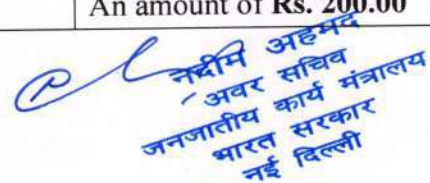 An amount of Rs. 200.00
नदीम अहमद
अवर सचिव
जनजातीय कार्य मंत्रालय
भारत सरकार
नई दिल्ली